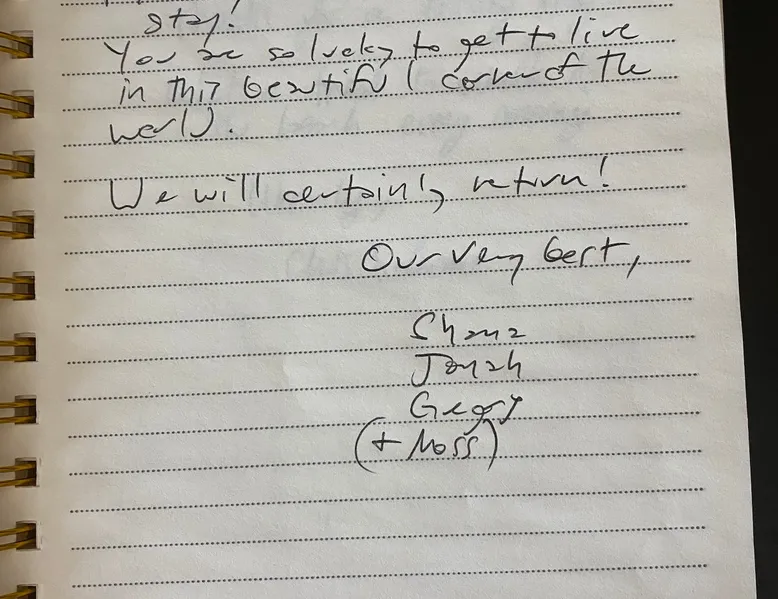 stay!
You are so lucky to get to live
in this beautiful corner of the
world.
We will certainly return!
Our very best,
Shana
Jonah
(+ Moss)